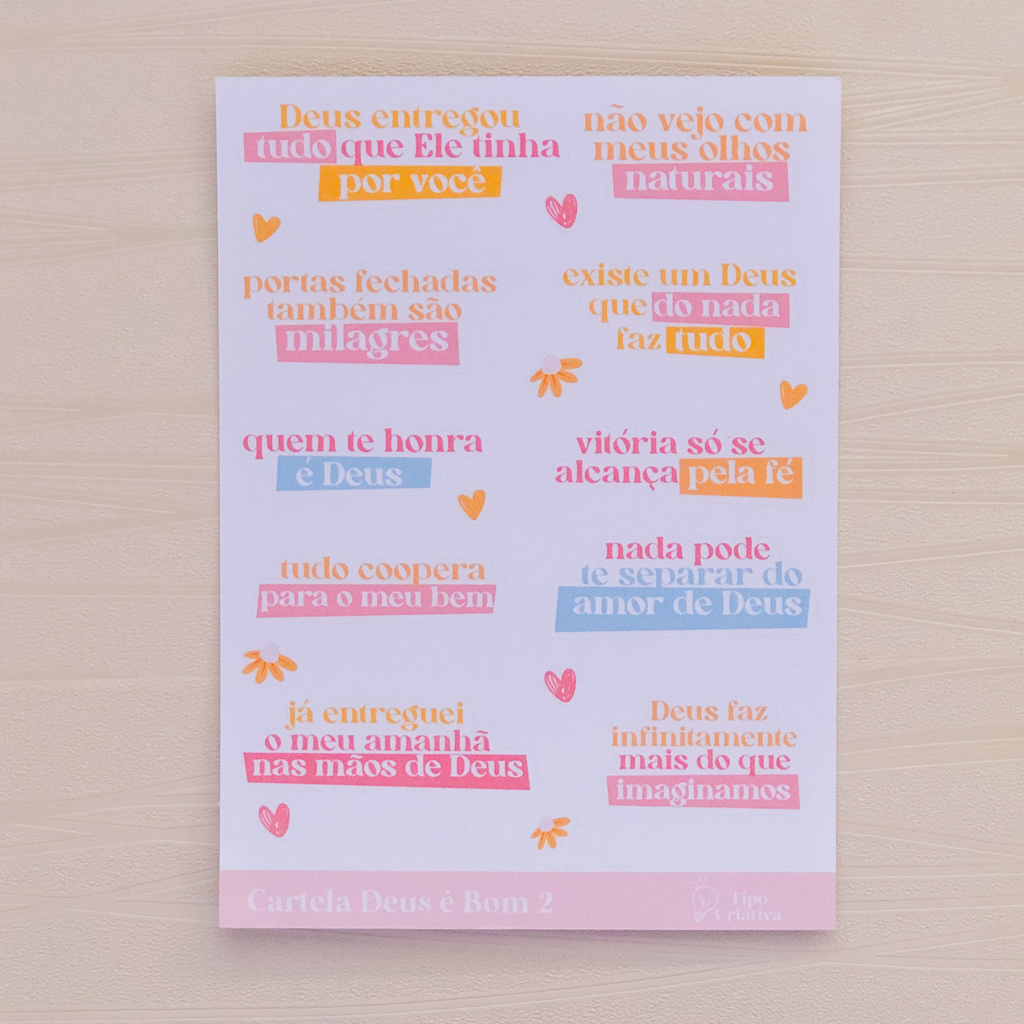 Deus entregou
tudo que Ele tinha
por você
não vejo com
meus olhos
naturais
portas fechadas
também são
milagres
existe um Deus
que do nada
faz tudo
quem te honra
é Deus
vitória só se
alcança pela fé
tudo coopera
para o meu bem
nada pode
te separar do
amor de Deus
já entreguei
o meu amanhã
nas mãos de Deus
Deus faz
infinitamente
mais do que
imaginamos
Cartela Deus é Bom 2
Tipo
Criativa